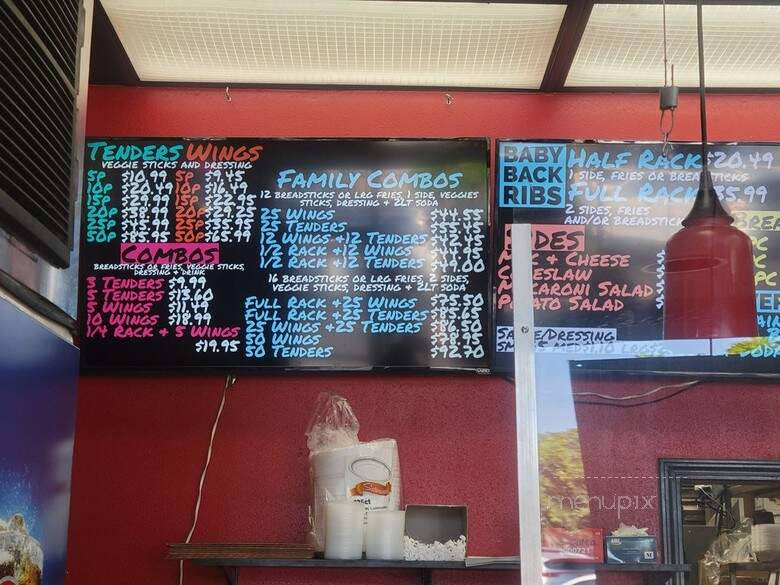 TENDERS WINGS
VEGGIE STICKS AND DRESSING
5P $10.99 5P $9.45
10P $20.49 10P $16.49
15P $29.99 15P $22.95
20P $38.99 20P $29.25
25P 25P
50P 50P
COMBOS
BREADSTICKS OR FRIES, VEGGIE STICKS,
DRESSING & DRINK
3 TENDERS $9.99
5 TENDERS $13.60
5 WINGS $11.49
10 WINGS $18.99
1/4 RACK + 5 WINGS
$19.95
FAMILY COMBOS
12 BREADSTICKS OR LRG FRIES, 1 SIDE, VEGGIE
STICKS, DRESSING & 2LT SODA
25 WINGS $44.55
25 TENDERS
12 WINGS +12 TENDERS
1/2 RACK +12 WINGS
1/2 RACK +12 TENDERS
16 BREADSTICKS OR LRG FRIES, 2 SIDES,
VEGGIE STICKS, DRESSING & 2LT SODA
FULL RACK +25 WINGS $75.50
FULL RACK +25 TENDERS $85.65
25 WINGS +25 TENDERS $86.50
50 WINGS $78.95
50 TENDERS $92.70
BABY
BACK
RIBS
HALF RACK $20.49
1 SIDE, FRIES OR BREADSTICKS
FULL RACK 35.99
2 SIDES, FRIES
AND/OR BREADSTICK
SIDES
& CHEESE
MACARONI SALAD
SALAD
/DRESSING
menupix